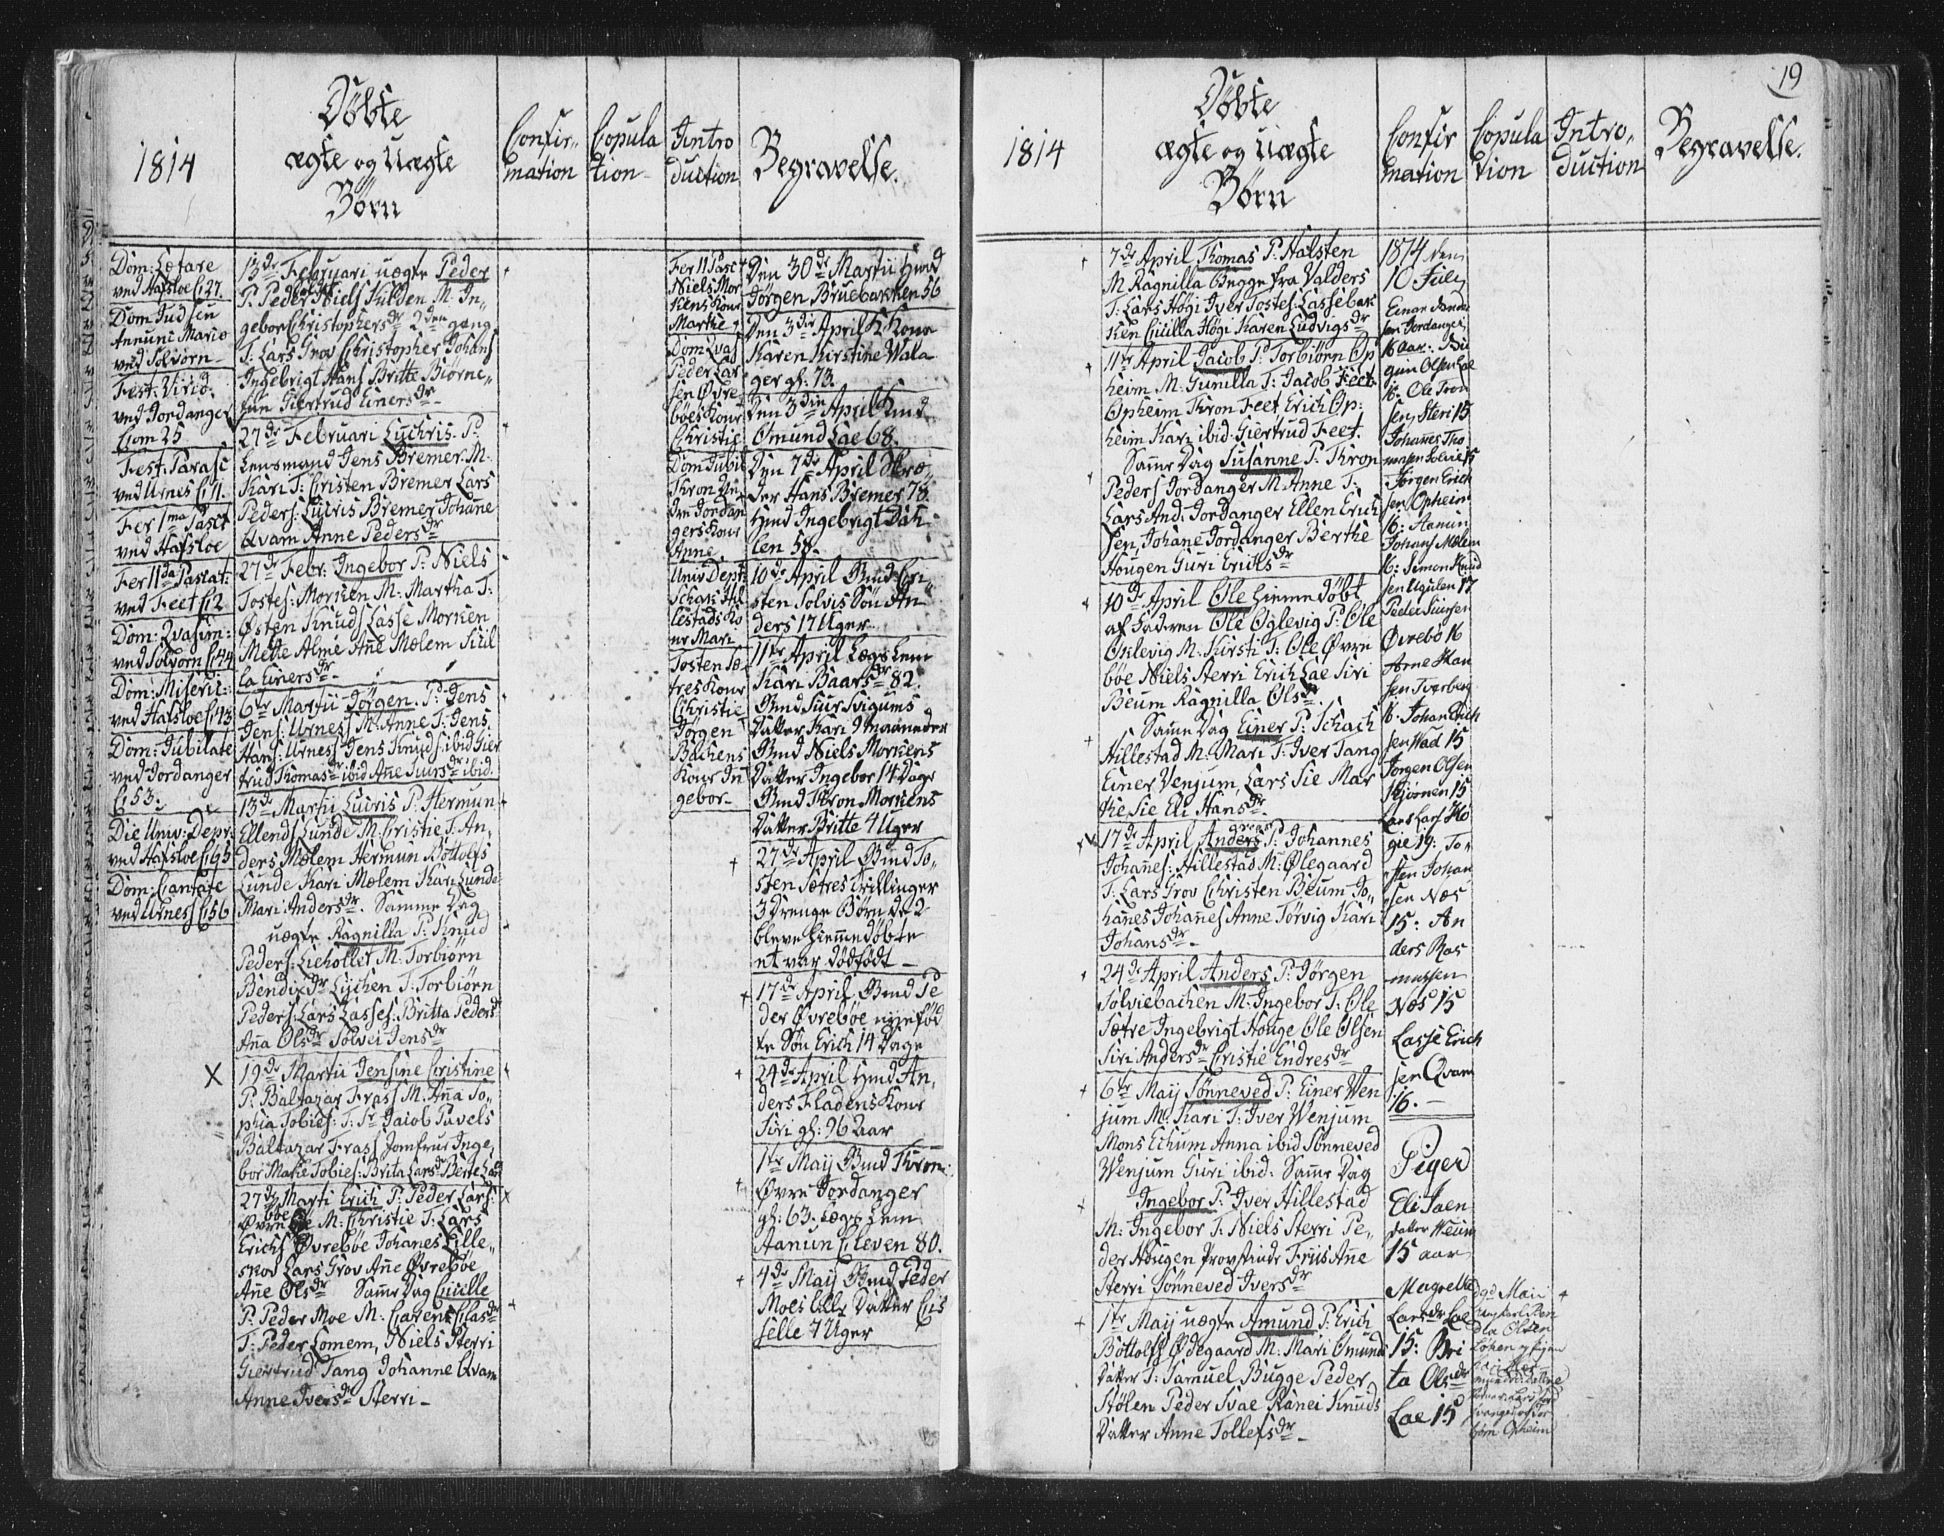 1814
Døbte
ægte og Uægte
Børn
Confir-
mation
Copula
tion
Intro
duction
Begravelse.
Dom: Lætare
ved Hafsloe C: 27.
Dom Judi
Annunc Mario
ved Solvorn
Fest: Virid:
ved Jordanger
Com 25
Fest: Parasc
ved Urnes C: 11.
Fer 1ma Pasct
ved Hafsloe
Fer 11da Pascat:
ved Feet C: 2
Dom: Qvasim:
ved Solvorn C: 44
Dom: Miseric:
ved Hafsloe C: 13
Dom: Jubilate
ved Jordanger
C: 53.
Die Univ: Depr:
ved Hafsloe C: 95
Dom: Cantate
ved Urness C: 56
13de Februari uægte Peder
P. Peder Niels Kulden M. In-
gebor Christophersdr 2den gang
T: Lars Grov Christopher Johans
Ingebrigt Hans Britte Biørne-
tun Giertrud Einersdr
27de Februari Lucris. P:
Lensmand Jens Bremer. M:
Kari T: Cristen Bremer Lars
Peders: Lucris Bremer Johane
Qvam Anne Pedersdr
27de Febr: Ingebor P: Niels
Tostes: Morken M: Martha T:
Østen Knuds Lasse Morken
Mette Alme Ane Mælem Sicil
la Einersdr
6te Martii Jörgen. P: Jens
Jens: Urness M: Anne T: Jens
Hans: Urness Jens Knuds ibid Gier
trud Thomasdr ibid Ane Siursdr ibid.
13de Martii Lucris P: Hermun
Ellends Lunde M: Cristie T: An-
ders Mælem Hermun Bottolfs
Lunde Kari Mælem Kari Lunde
Mari Andersdr. Samme Dag
uægte Ragnilla P: Knud
Peders: Lieholler M: Torbiørn
Bendixdr Lychen T: Torbiørn
Peders: Lars Lasses: Britta Pedersdr
Ana Olsdr Solvei Jensdr
X
19de Martii Jensine Cristine
P: Baltazar Frass M: Ana So-
phia Tobies: T: Sr Jacob Pavels
Baltazar Frass Jomfrue Inge-
bor Marie Tobies: Brita Larsdr
27de Marti Erich P: Peder Lars:
Øvrebøe M: Christie T: Lars
Erichs Øvrebøe Johanes Lille-
skov Lars Grov Ane Øvrebøe
Ane Olsdr Same Dag Cicille
P: Peder Moe M: Caren Clasdr
T: Peder Lomem, Niels Sterri
Giertrud Tang Johanne Qvam
Anne Iversdr Sterri
Fer 11 Pasc
Niels Mor
kens Kone
Marthe
Dom Qvas
Peder Lar
sen Øvre
böes Kone
Christie
Dom Jubil
Thron
Jordan
gers Kone
Anne
Univ Dept:
Schak Hil
lestads Ko
ne Mari
Tosten Sæ
tres Kone
Christie
Jørgen
Bachens
Kone In
gebor
Den 30de Martii Hmd
Jörgen Bruebakken 56
Den 3die April K Kone
Karen Kirstine Wala
ger gl: 73.
Den 3die April Hmd
Omund Lae 68.
Den 7de April Skræ-
der Hans Bremer 73.
Hmd Ingebrigt Dah
len 58.
10de April Bmd Cri-
sten Solvis Søn An
ders 17 Uger
11te April Lægs Lem
Kari Baarsdr 82.
Bmd Siur Svigums
Datter Kari 9 maaneder
Bmd Niels Morkens
Datter Ingebor 14 Dage
Bmd Thron Morkens
Datter Britte 4 Uger
27de April Bmd To-
sten Sætres Trillinger
3 Drenge Børn de 2
bleve hiemmedøbte
et var dødfødt
17de April Bmd Pe
der Øvrebøe nyefød
te Søn Erich 14 Dage
24de April Hmd An-
ders Fladens Kone
Siri gl: 76 Aar
1te Maij Bmd Thron
Øvre Jordanger
gl: 63. Lægs Lem
Aamun Cleven 80.
4de Maij Bmd Peder
Moes lille Datter Cis
selle 7 Uger
19
1814
Døbte
ægte og Uægte
Børn
Confir
mation
Copula
tion
Intro-
duction
Begravelse.
7de April Thomas P: Halsten
M Ragnilla begge fra Valders
T: Lars Høgi Iver Tostes: Lassebak
ken Cicilla Høgi Karen Ludvigsdr
11te April Jacob P: Torbiørn Op
heim M: Gunilla T: Jacob Feet
Opheim Thron Feet Erich Op:
heim Kari ibid Giertrud Feet.
Same Dag Susanne P: Thron
Peders Jordanger M Anne T:
Lars And: Jordanger Ellen Erich
sen, Johane Jordanger Berthe
Hougen Guri Erichsdr
10de April Ole hiemmedøbt
af Faderen Ole Oglevig P: Ole
Oklevig M: Kirsti T: Ole Øvre
bøe Niels Sterri Erich Lae Siri
Beum Ragnilla Olsdr
Same Dag Einer P: Schach
Hillestad M: Mari T: Iver Tang
Einer Venjum, Lars Sie Mar
the Sie Eli Hansdr
17de April Anders P: Johannes
Johanes: Hillestad M: Ølegaard
T: Lars Grov Christen Beum Jo-
hanes Johanes Anne Torvig Kari
Johansdr
24de April Anders P: Jörgen
Solviebachen M: Ingebor T: Ole
Sætre Ingebrigt Houge Ole Olsen
Siri Andersdr Cristie Endresdr
6te Maij Sønneved P: Einer Ven
jum M: Kari T: Iver Wenjum
Mons Eikum Anna ibid Sønneved
Wenjum Guri ibid: Same Dag
Ingebor P: Iver Hillestad
M: Ingebor T: Niels Sterri Pe-
der Hougen Provstinde Friis Ane
Sterri Sønneved Iversdr
1te Maij uægte Amund P: Erich
Bottolfs Ødegaard M: Mari Omunds
Datter T: Samuel Bugge Peder
Stølen Peder Svae Ranei Knuds
Datter Anne Tollefsdr
1814 den
10 July
Einar
sen Jordanger
16 aar.
Olsen Lae
16: Ole Tron
sen Sterri 15
Johanes Tho
mesen Solvie 15
Jörgen Erich
sen Opheim
16: Aamun
Johans Mælem
16: Simon Knud
sen Ugulen 17
Peder Siursen
Øvrebö 16
Arne Han
sen Tverberg
16. Johan Erich
sen Wad 15
Jørgen Olsen
Kjörnen 15
Lars Lars Hö
gie 19: To
sten Johan
sen Næs
15: An
ders Ras
mussen
Næs 15
Lasse Erich
sen Qvam
16.
Piger
Eli Jaen
datter Weum
15 aar
Magrethe
Larsdr Lae
15: Bri
ta Olsdr
Lae 15
d 9d Maii
Olsen
Opheim